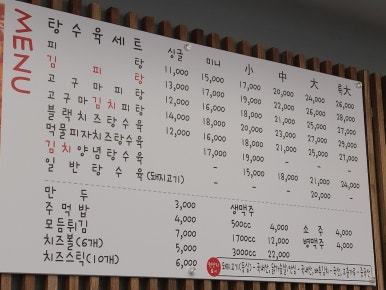 MENU
탕수육세트 싱글 미니 小 中 大 특大
피탕 11,000 15,000 17,000 20,000 24,000 26,000
김피탕 13,000 17,000 19,000 22,000 26,000 28,000
고구마피탕 12,000 16,000 18,000 21,000 25,000 27,000
고구마김치피탕 14,000 18,000 20,000 23,000 27,000 29,000
블랙치즈탕수육 12,000 16,000 18,000 21,000 25,000 27,000
먹물피자치즈탕수육 12,000 16,000 18,000 21,000 25,000
김치양념탕수육 17,000 19,000 - - -
일반탕수육(돼지고기) - 15,000 18,000 21,000 24,000
20,000 -
만두 3,000
주먹밥 4,000
모듬튀김 7,000
치즈볼(6개) 5,000
치즈스틱(10개) 6,000
생맥주
500cc 4,000 소주 4,000
1700cc 12,000 병맥주 4,000
3000cc 22,000